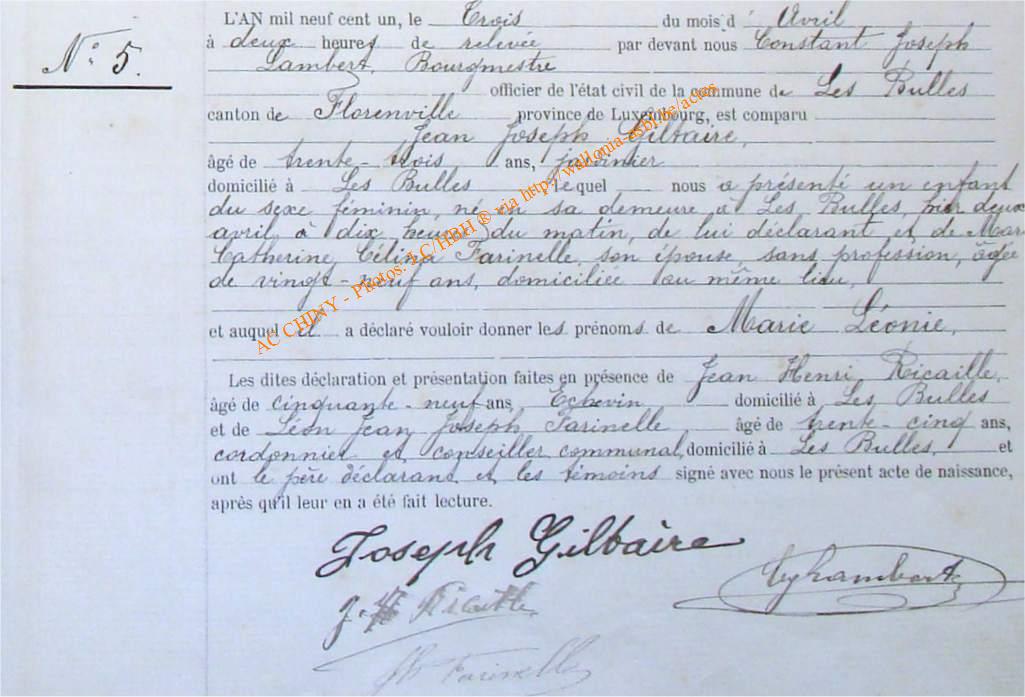 N° 5.
L'AN mil neuf cent un, le Trois du mois d' Avril
à deux heures de relevée par devant nous Constant Joseph
Lambert, Bourgmestre
officier de l'état civil de la commune de Les Bulles
canton de Florenville province de Luxembourg, est comparu
Jean Joseph Gilbaire,
âgé de trente-trois ans, jardinier
domicilié à Les Bulles lequel nous a présenté un enfant
du sexe féminin, né en sa demeure à Les Bulles, hier deux
avril, à dix heures du matin, de lui déclarant et de Marie
Catherine Célina Farinelle, son épouse, sans profession, âgée
de vingt-neuf ans, domiciliée au même lieu,
et auquel il a déclaré vouloir donner les prénoms de Marie Léonie,
Les dites déclaration et présentation faites en présence de Jean Henri Ricaille,
âgé de cinquante-neuf ans, Echevin domicilié à Les Bulles
et de Léon Jean Joseph Farinelle âgé de trente-cinq ans,
cordonnier et conseiller communal, domicilié à Les Bulles, et
ont le père déclarant et les témoins signé avec nous le présent acte de naissance,
après qu'il leur en a été fait lecture.
Joseph Gilbaire
Lambert
J. H Ricaille
Farinelle
AC CHINY - Photos: J.C/HBH ® via http://wallonia-asbl.be/actes